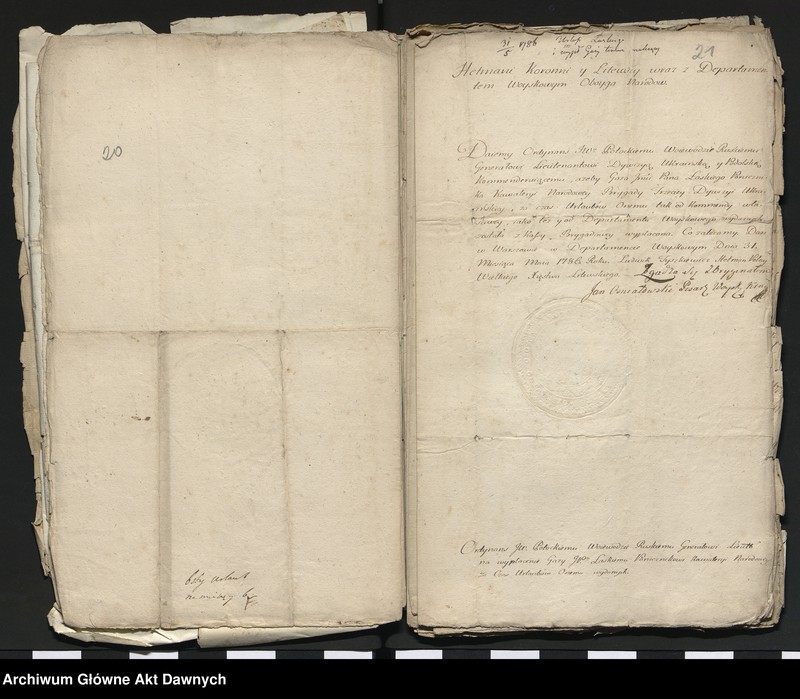 20
6
31/5 1786
21
Hetmani Koronni y Litewscy wraz z Departamen
tem Woyskowym Oboyga Narodow
Daiemy Ordynans JWu Potockiemu Woiewodzie Ruskiemu
Generałowi Lieutenantowi Dywizyą Ukrainską y Podolską
Kommenderuiącemu, azeby Gaża Pana Laskiego Poruczni
ka Kawaleryi Narodowey Brygady Trzeciey Dywizyi Ukra
inskiey, za czas Urlopow Onemu tak od Kommendy
iako też y od Departamentu Woyskowego wydanych
została z Kassy Brygadowey wypłacona. Co zalecamy. Dan
w Warszawie w Departamencie Woyskowym Dnia 31.
Miesiąca Maia 1786 Roku. Ludwik Tyszkiewicz Hetman Polny
Wielkiego Xięstwa Litewskiego. Zgadza się z Oryginałem
Jan Pisarz Woysk. Kor.
Ordynans JW. Potockiemu Woiewodzie Ruskiemu Generałowi
na wypłacenie Gaży Laskiemu Porucznikowi Kawaleryi Narodowey
za Czas Urlopow Onemu wydanych.
Archiwum Główne Akt Dawnych